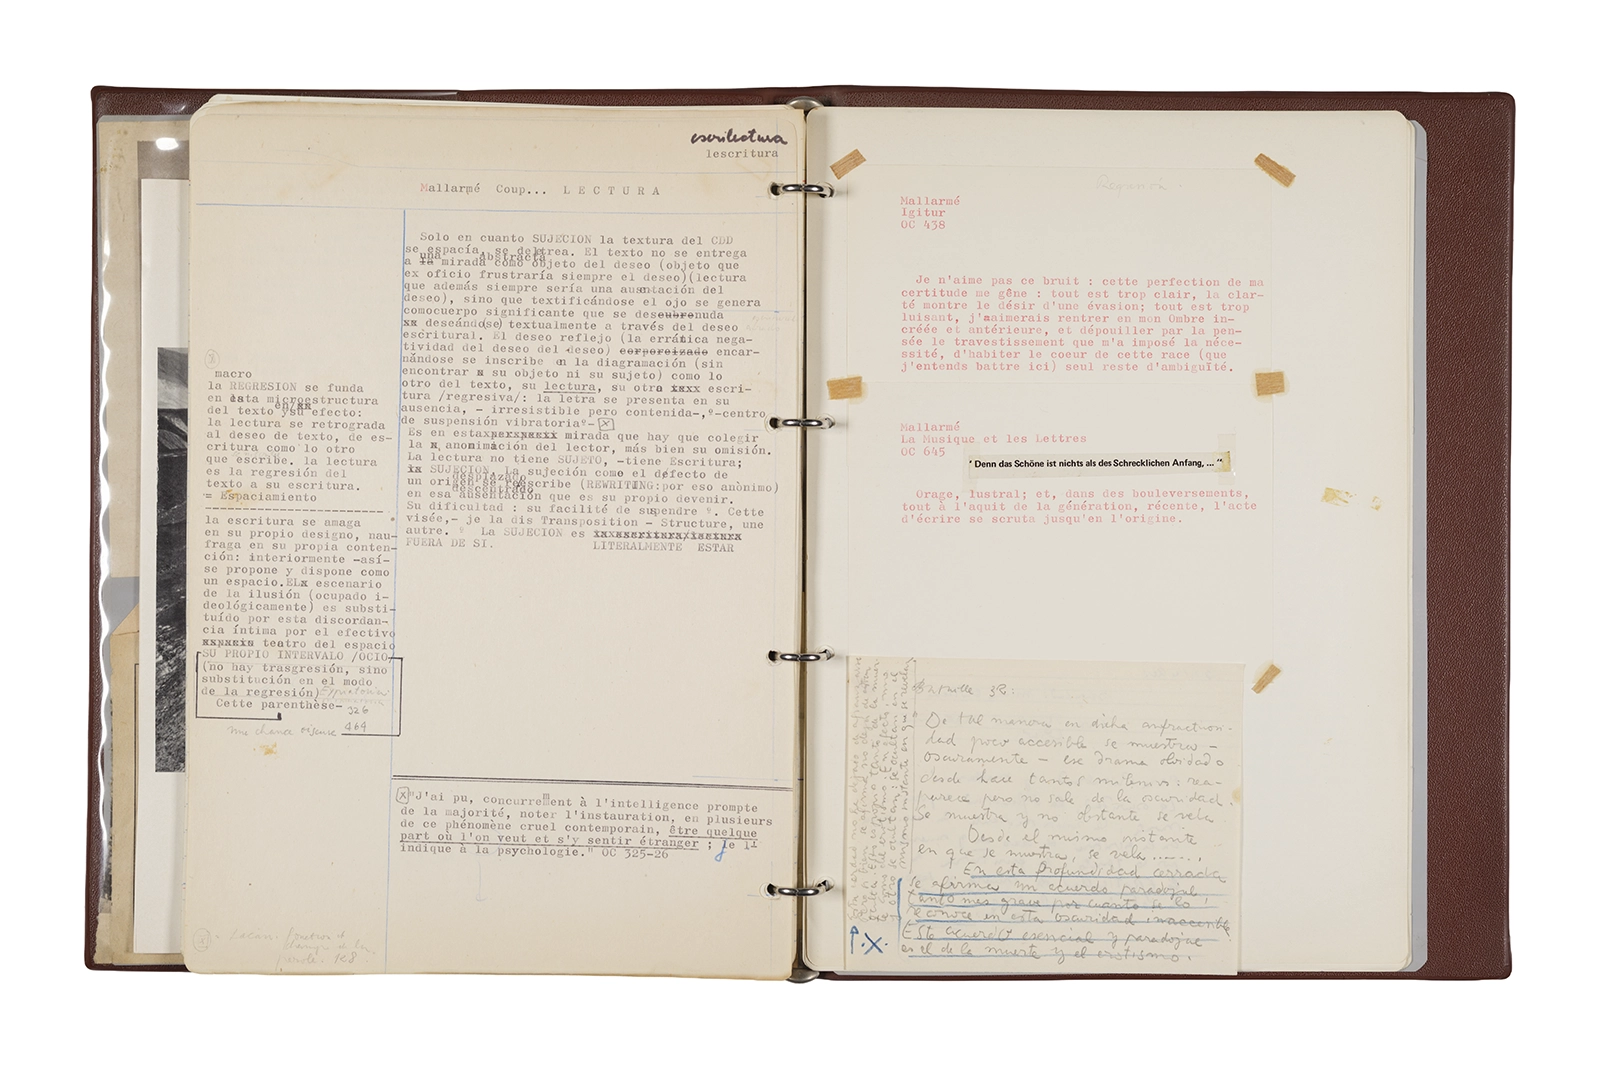 escrilectura
lescritura
Mallarmé Coup... LECTURA
Solo en cuanto SUJECION la textura del CDD
se espacía, se deletrea. El texto no se entrega
una abstracta
a la mirada como objeto del deseo (objeto que
ex oficio frustraría siempre el deseo)(lectura
que además siempre sería una ausentación del
deseo), sino que textificándose el ojo se genera
comocuerpo significante que se descubrenuda
xx deseándo(se) textualmente a través del deseo
escritural. El deseo reflejo (la errática nega-
tividad del deseo del deseo) corporeizado encar-
nándose se inscribe en la diagramación (sin
encontrar a su objeto ni su sujeto) como lo
otro del texto, su lectura, su otra xxxx escri-
tura /regresiva/: la letra se presenta en su
ausencia, - irresistible pero contenida-,º-centro
de suspensión vibratoriaº- x
Es en esta mirada que hay que colegir
la anonimàción del lector, más bien su omisión.
La lectura no tiene SUJETO, -tiene Escritura;
ix SUJECION. La sujeción como el defecto de
desplazado
un origen se reescribe (REWRITING:por eso anònimo)
descentrado
en esa ausentación que es su propio devenir.
Su dificultad : su facilité de suspendre º. Cette
visée,- je la dis Transposition - Structure, une
autre. º La SUJECION es
FUERA DE SI. LITERALMENTE ESTAR
macro
la REGRESION se funda
en esta microestructura
en/xx
del texto ysu efecto:
la lectura se retrograda
al deseo de texto, de es-
critura como lo otro
que escribe. la lectura
es la regresión del
texto a su escritura.
= Espaciamiento
la escritura se amaga
en su propio designo, nau-
fraga en su propia conten-
ción: interiormente -así-
se propone y dispone como
un espacio.ELx escenario
de la ilusión (ocupado i-
deológicamente) es substi-
tuído por esta discordan-
cia íntima por el efectivo
xxpacio teatro del espacio
SU PROPIO INTERVALO /OCIO
(no hay trasgresión, sino
substitución en el modo
de la regresión)
Cette parenthèse-
326
une chance oiseuse 464
x "J'ai pu, concurremment à l'intelligence prompte
de la majorité, noter l'instauration, en plusieurs
de ce phénomène cruel contemporain, être quelque
part où l'on veut et s'y sentir étranger ; je l'
indique à la psychologie." OC 325-26
Lacan.
parole. 168.
Mallarmé
Igitur
OC 438
Je n'aime pas ce bruit : cette perfection de ma
certitude me gêne : tout est trop clair, la clar-
té montre le désir d'une évasion; tout est trop
luisant, j'aimerais rentrer en mon Ombre in-
créée et antérieure, et dépouiller par la pen-
sée le travestissement que m'a imposé la néce-
ssité, d'habiter le coeur de cette race (que
j'entends battre ici) seul reste d'ambiguïté.
Mallarmé
La Musique et les Lettres
OC 645
"Denn das Schöne ist nichts als des Schrecklichen Anfang, ..."
Orage, lustral; et, dans des bouleversements,
tout à l'aquit de la génération, récente, l'acte
d'écrire se scruta jusqu'en l'origine.
Bataille 32:
De tal manera en dicha anfractuosi-
dad poco accesible se muestra -
oscuramente - ese drama olvidado
desde hace tantos milenios: rea-
parece pero no sale de la oscuridad.
Se muestra y no obstante se vela.
Desde el mismo instante
en que se muestra, se vela ......
En esta profundidad cerrada
se afirma un acuerdo paradojal
tanto mas grave por cuanto se lo
reconoce en esta oscuridad inaccesible
Este acuerdo esencial y paradojal
es el de la muerte y el erotismo.
X.